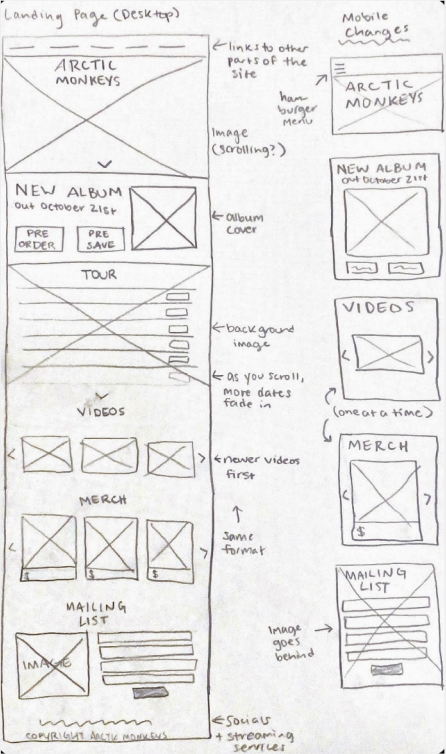 Landing Page (Desktop)
ARCTIC
MONKEYS
links to other
parts of the
site
Image
(scrolling?)
NEW ALBUM
out October 21st
PRE
ORDER
PRE
SAVE
album
cover
TOUR
background
image
as you scroll,
more dates
fade in
VIDEOS
newer videos
first
MERCH
$
$
$
Same
format
MAILING
LIST
IMAGE
Socials
+ streaming
services
COPYRIGHT ARCTIC MONKEYS
Mobile
Changes
ham
burger
Menu
ARCTIC
MONKEYS
NEW ALBUM
out October 21st
VIDEOS
(one at a time)
MERCH
$
MAILING
LIST
Image
goes
behind